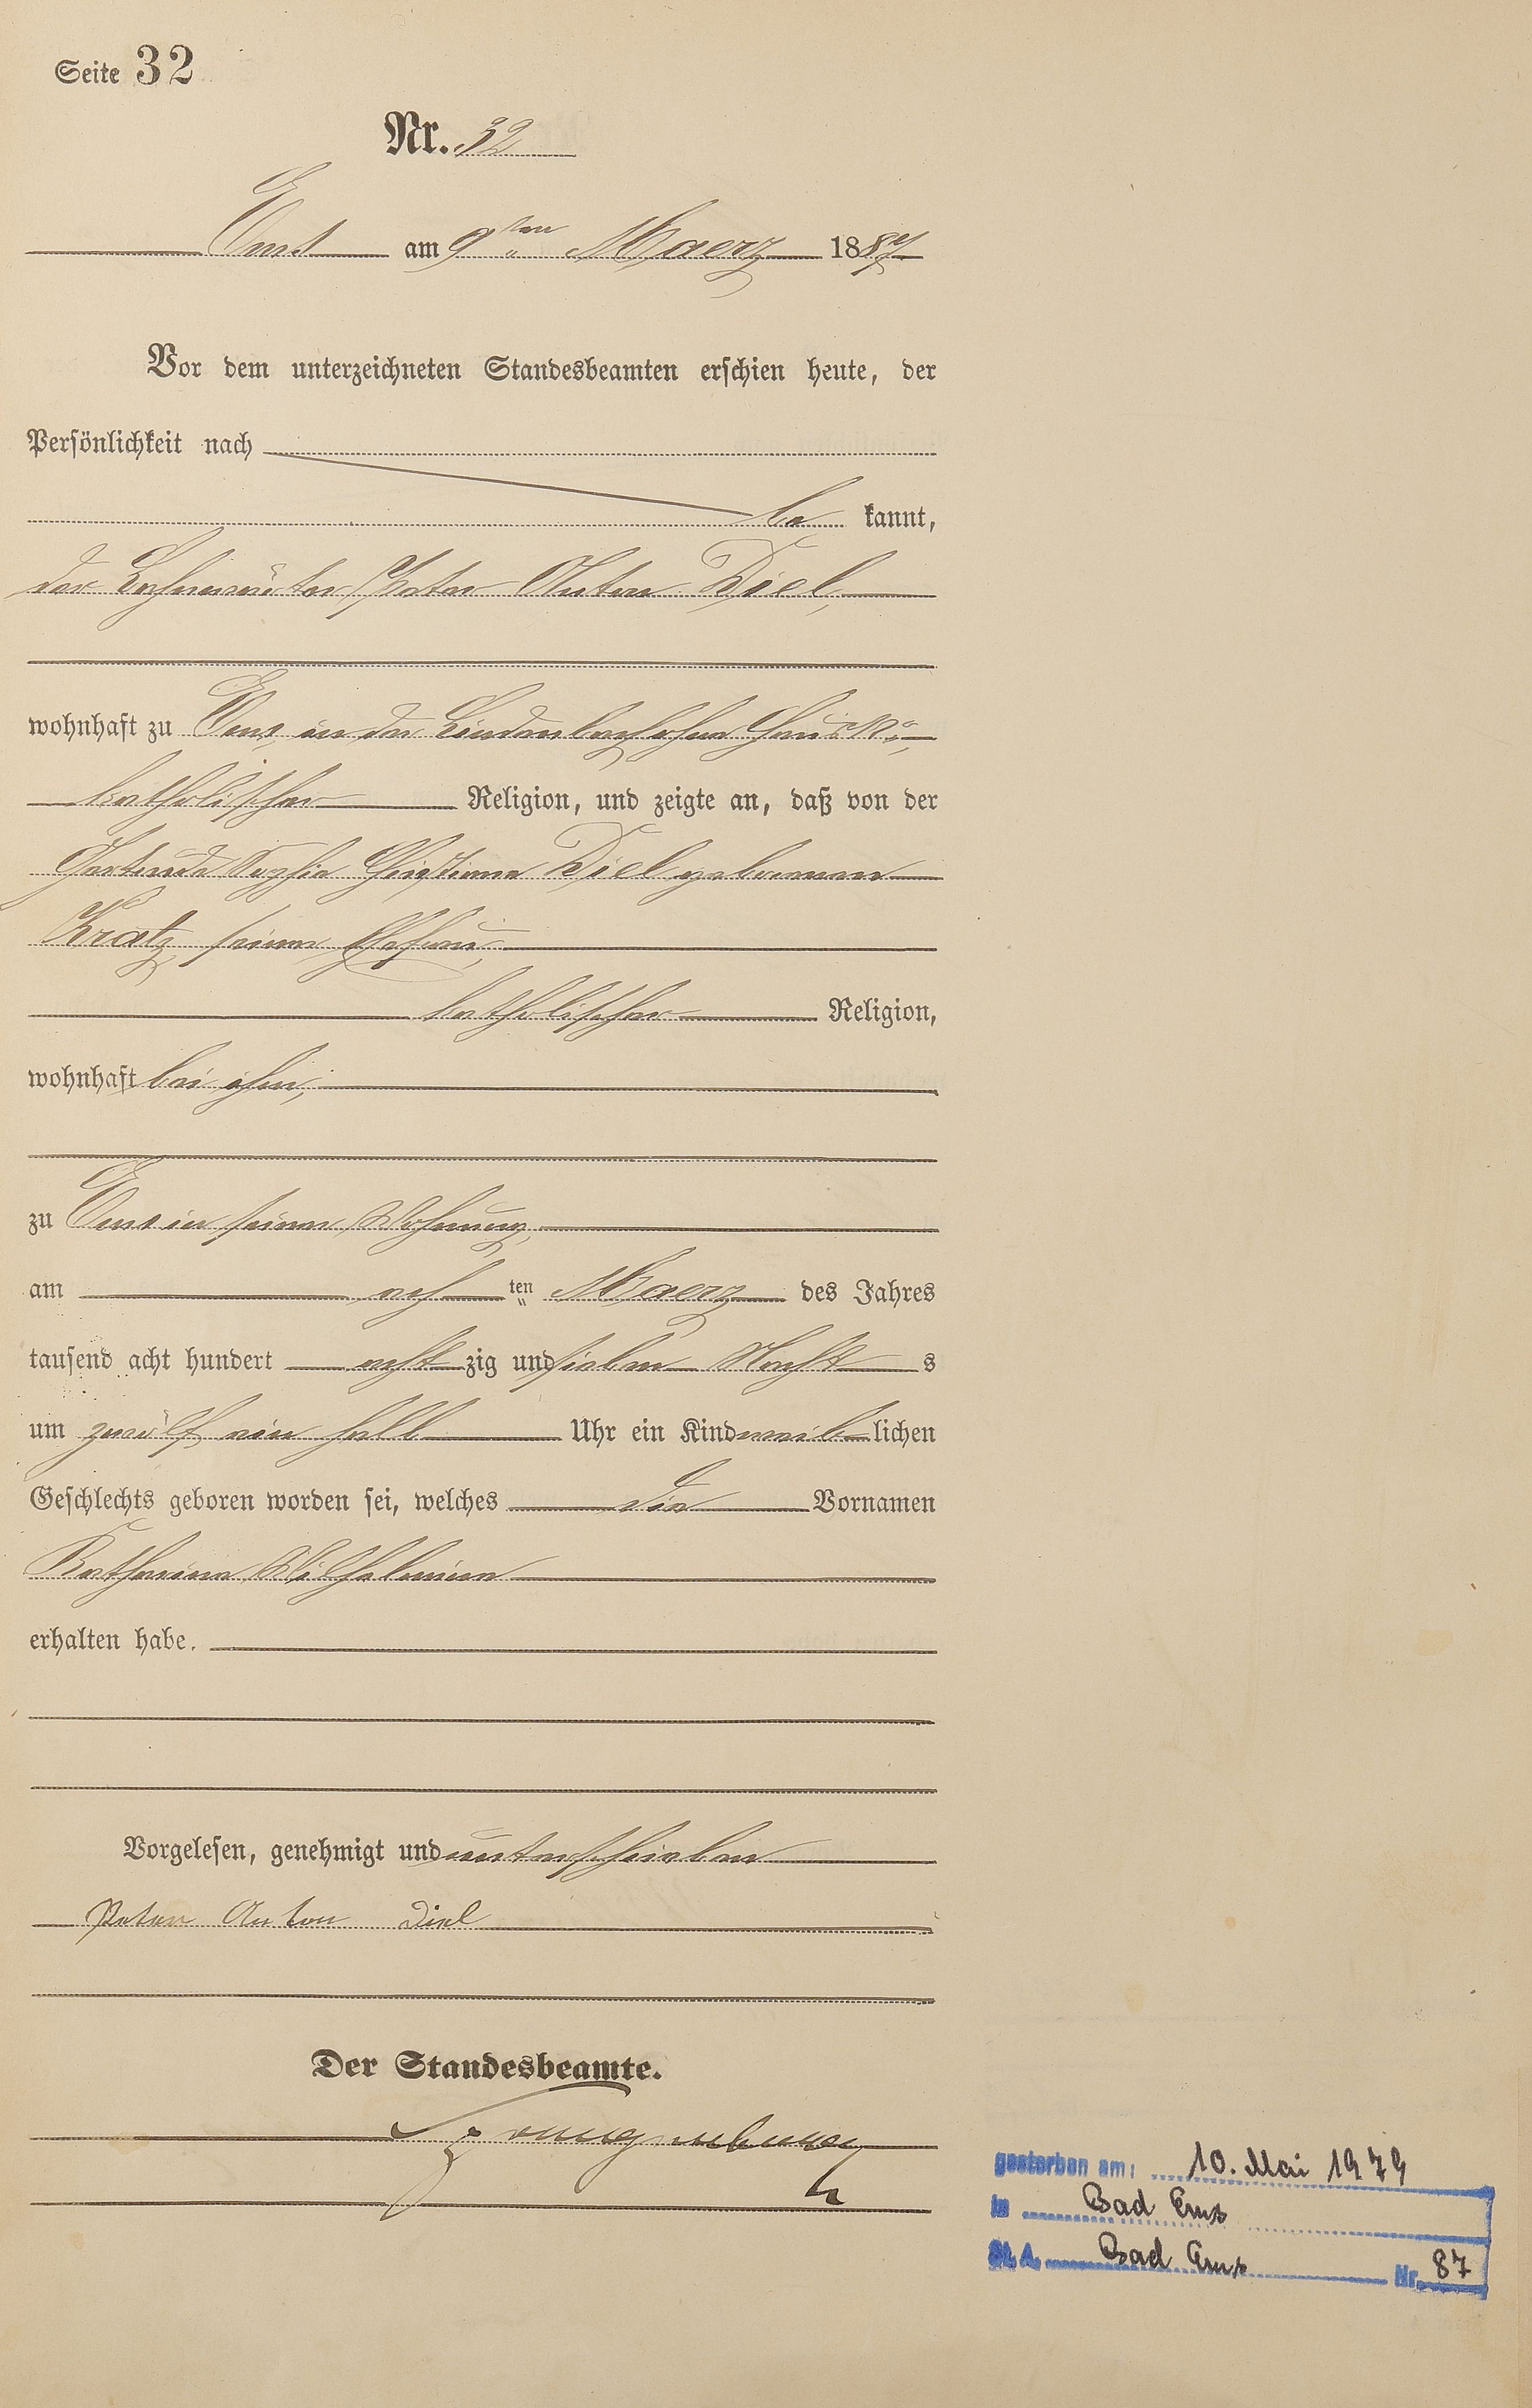 Seite 32
Nr. 32
Ems am 9ten Maerz 1887
Vor dem unterzeichneten Standesbeamten erschien heute, der
Persönlichkeit nach
be kannt,
der Bahnwärter Peter Anton Diel,
wohnhaft zu Ems, in der Lindenbach ohne Haus No,
katholischer Religion, und zeigte an, daß von der
Gertrude Sophia Christiana Diel geborenen
Kratz, seiner Ehefrau,
katholischer Religion,
wohnhaft bei ihm,
zu Ems in seiner Wohnung,
am ach ten Maerz des Jahres
tausend acht hundert acht zig und sieben Nacht s
um zwölf ein halb Uhr ein Kind weib lichen
Geschlechts geboren worden sei, welches die Vornamen
Katharina Wilhelmina
erhalten habe.
Vorgelesen, genehmigt und unterschrieben
Peter Anton Diel
Der Standesbeamte.
gestorben am: 10. Mai 1979
in Bad Ems
St. A. Bad Ems Nr. 87